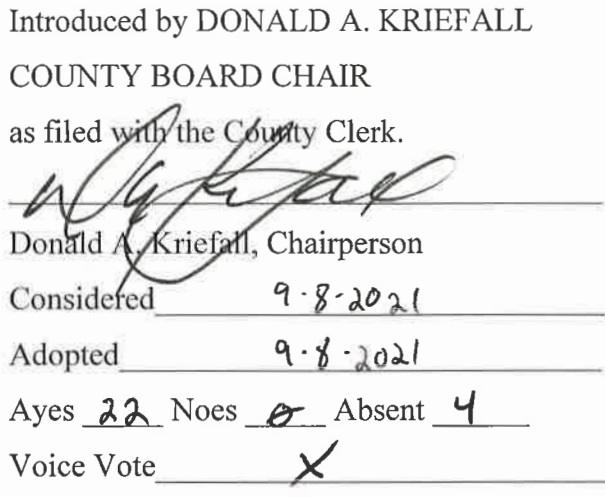 Introduced by DONALD A. KRIEFALL
COUNTY BOARD CHAIR
as filed with the County Clerk.
Donald A. Kriefall, Chairperson
Considered 9-8-2021
Adopted 9-8-2021
Ayes 22 Noes 0 Absent 4
Voice Vote X